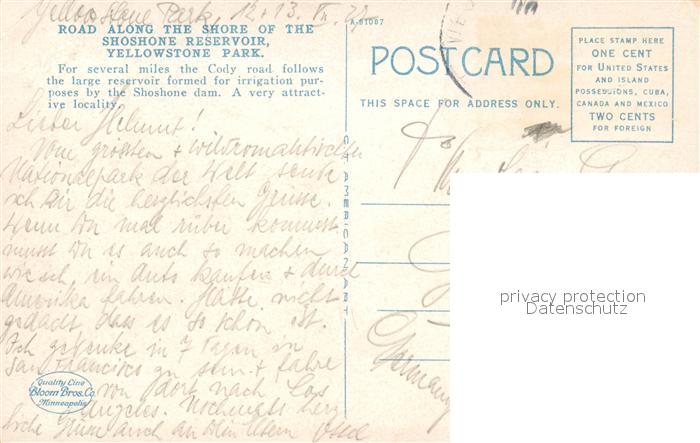 Yellowstone Park, 12 + 13. VII.
ROAD ALONG THE SHORE OF THE
SHOSHONE RESERVOIR,
YELLOWSTONE PARK.
For several miles the Cody road follows
the large reservoir formed for irrigation pur-
poses by the Shoshone dam. A very attract-
ive locality.
Lieber Helmut!
Vom grossten + wildromantischten
Nationalpark der Welt sende
ich Dir die herzlichsten Grüsse.
Wenn Du mal rüber kommst
musst Du es auch so machen
wie ich, ein Auto kaufen + durch
Amerika fahren. Hätte nicht
gedacht, dass es so schön ist.
Ich gedenke in 7 Tagen in
San Francisco zu sein + fahre
von dort nach Los
Angeles. Nochmals herz
liche Grüsse auch an Deine Eltern
Quality Line
Bloom Bros. Co.
Minneapolis
A-91067
C.T. AMERICAN ART
POSTCARD
THIS SPACE FOR ADDRESS ONLY.
PLACE STAMP HERE
ONE CENT
FOR UNITED STATES
AND ISLAND
POSSESSIONS, CUBA,
CANADA AND MEXICO
TWO CENTS
FOR FOREIGN
Germany
privacy protection
Datenschutz